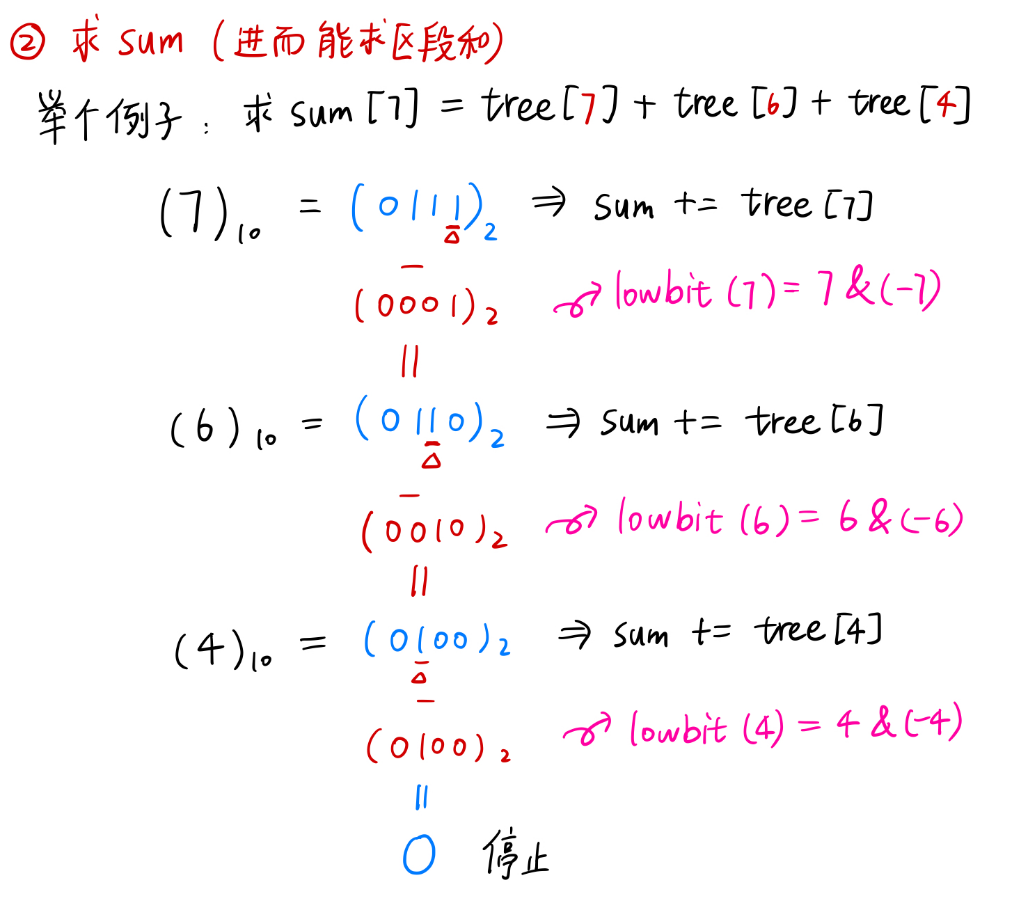 ② 求 sum (进而能求区段和)
举个例子: 求 sum [7] = tree [7] + tree [6] + tree [4]
(7)₁₀ = (0111)₂ ⇒ sum += tree [7]
−
(0001)₂ lowbit (7) = 7 & (-7)
||
(6)₁₀ = (0110)₂ ⇒ sum += tree [6]
−
(0010)₂ lowbit (6) = 6 & (-6)
||
(4)₁₀ = (0100)₂ ⇒ sum += tree [4]
−
(0100)₂ lowbit (4) = 4 & (-4)
||
0 停止